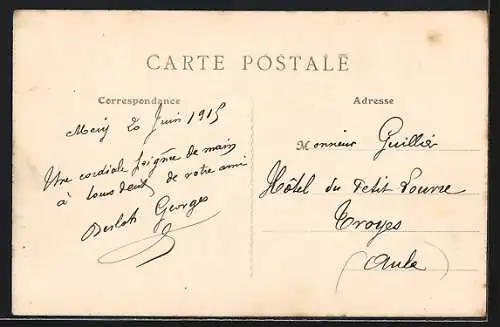 CARTE POSTALE
Correspondance
Adresse
Mery 20 Juin 1915
Une cordiale poignée de main
à tous deux de votre ami
Georges
Monsieur Guillier
Hôtel du Petit Louvre
Troyes
(Aube)